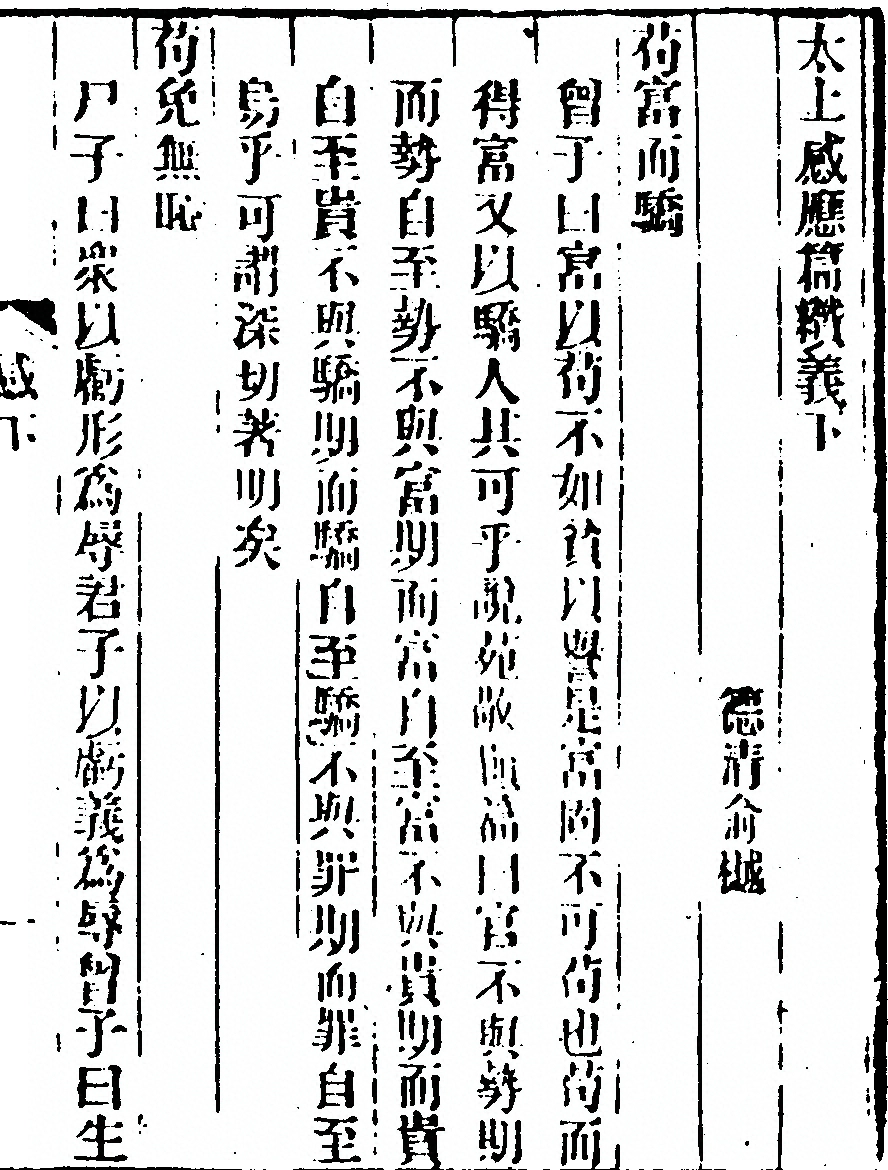 太上感應篇纘義下
德清俞樾
苟富而驕
曾子曰富以苟不如貧以譽是富固不可苟也苟而
得富又以驕人其可乎說苑敬慎篇曰官不與勢期
而勢自至勢不與富期而富自至富不與貴期而貴
自至貴不與驕期而驕自至驕不與罪期而罪自至
烏乎可謂深切著明矣
苟免無恥
尸子曰衆以虧形爲辱君子以虧義爲辱曾子曰生
感下